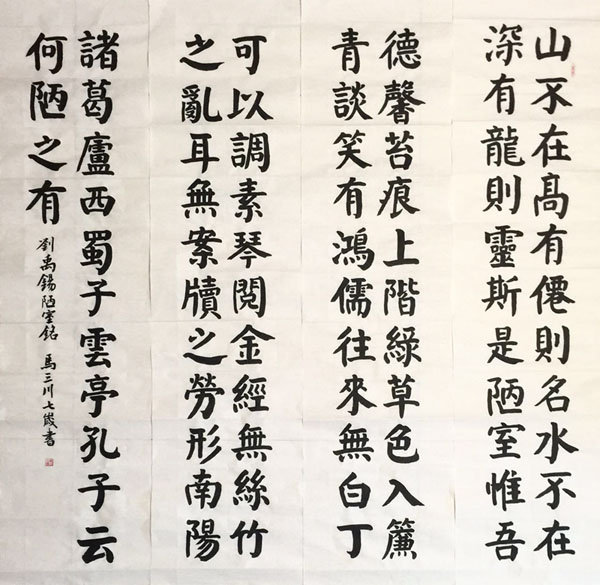 山不在高有僊則名水不在
深有龍則靈斯是陋室惟吾
德馨苔痕上階綠草色入簾
青談笑有鴻儒往來無白丁
可以調素琴閱金經無絲竹
之亂耳無案牘之勞形南陽
諸葛廬西蜀子雲亭孔子云
何陋之有
劉禹錫陋室銘 馬三川七歲書